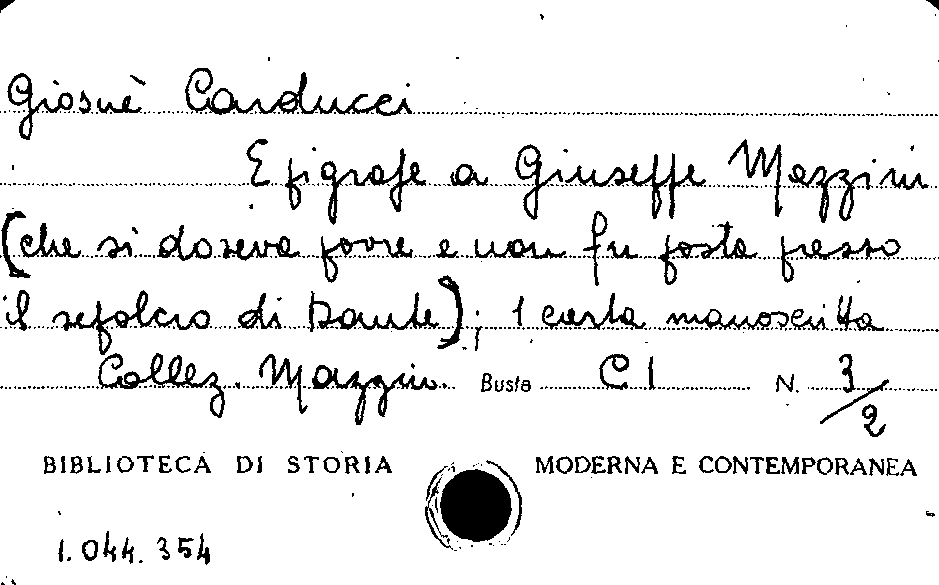 Giosuè Carducci
Epigrafe a Giuseppe Mazzini
(che si doveva porre e non fu posta presso
il sepolcro di Dante); 1 carta manoscritta
Collez. Mazzin. Busta C 1 N. 3/2
BIBLIOTECA DI STORIA MODERNA E CONTEMPORANEA
1.044.354